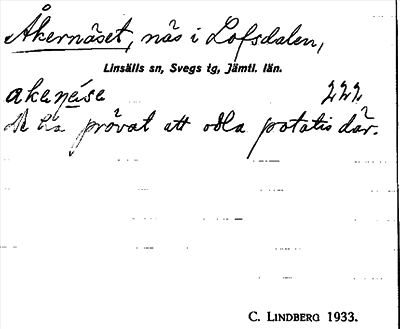 Åkernäset, näs i Lofsdalen,
Linsälls sn, Svegs tg, Jämtl. län.
akeṇése 222
De ha prövat att odla potatis där.
C. LINDBERG 1933.